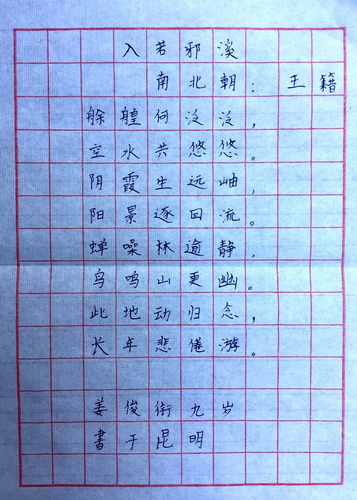 入若邪溪
南北朝：王籍
艅艎何泛泛，
空水共悠悠。
阴霞生远岫，
阳景逐回流。
蝉噪林逾静，
鸟鸣山更幽。
此地动归念，
长年悲倦游。
姜俊衔九岁
書于昆明